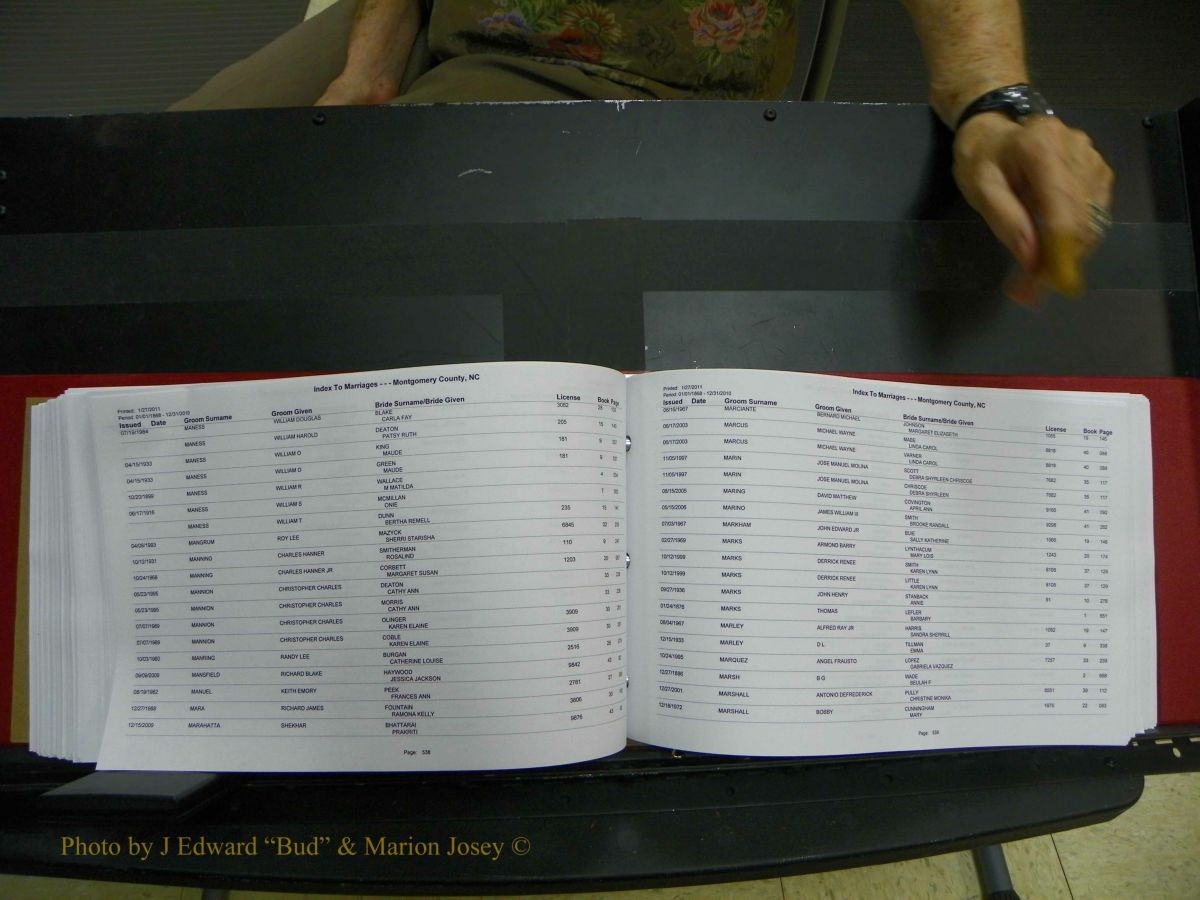 Index To Marriages - - - Montgomery County, NC
Printed: 1/27/2011
Period: 01/01/1868 - 12/31/2010
Issued Date Groom Surname Groom Given Bride Surname/Bride Given License Book Page
07/19/1984 MANESS WILLIAM DOUGLAS BLAKE 3082
CARLA FAY
MANESS WILLIAM HAROLD DEATON 205
PATSY RUTH
04/15/1933 MANESS WILLIAM O KING 181
MAUDE
04/15/1933 MANESS WILLIAM O GREEN 181
MAUDE
10/20/1899 MANESS WILLIAM R WALLACE
M MATILDA
06/17/1916 MANESS WILLIAM S MCMILLAN
ONIE
MANESS WILLIAM T DUNN 235
BERTHA REMELL
04/08/1993 MANGRUM ROY LEE MAZYCK 6845
SHERRI STARISHA
10/12/1931 MANNING CHARLES HANNER SMITHERMAN 110
ROSALIND
10/24/1958 MANNING CHARLES HANNER JR CORBETT 1203
MARGARET SUSAN
05/23/1995 MANNION CHRISTOPHER CHARLES DEATON
CATHY ANN
05/23/1995 MANNION CHRISTOPHER CHARLES MORRIS
CATHY ANN
07/07/1989 MANNION CHRISTOPHER CHARLES OLINGER 3909
KAREN ELAINE
07/07/1989 MANNION CHRISTOPHER CHARLES COBLE 3909
KAREN ELAINE
10/03/1980 MANRING RANDY LEE BURGAN 2516
CATHERINE LOUISE
09/09/2009 MANSFIELD RICHARD BLAKE HAYWOOD 9842
JESSICA JACKSON
08/19/1982 MANUEL KEITH EMORY PEEK 2781
FRANCES ANN
12/27/1988 MARA RICHARD JAMES FOUNTAIN 3806
RAMONA KELLY
12/15/2009 MARAHATTA SHEKHAR BHATTARAI 9876
PRAKRITI
Page: 538
Index To Marriages - - - Montgomery County, NC
Printed: 1/27/2011
Period: 01/01/1868 - 12/31/2010
Issued Date Groom Surname Groom Given Bride Surname/Bride Given License Book Page
06/16/1967 MARCIANTE BERNARD MICHAEL JOHNSON 1055 19 145
MARGARET ELIZABETH
06/17/2003 MARCUS MICHAEL WAYNE MABE 8818 40 088
LINDA CAROL
06/17/2003 MARCUS MICHAEL WAYNE VARNER 8818 40 088
LINDA CAROL
11/05/1997 MARIN JOSE MANUEL MOLINA SCOTT 7682 35 117
DEBRA SHYRLEEN CHRISCOE
11/05/1997 MARIN JOSE MANUEL MOLINA CHRISCOE 7682 35 117
DEBRA SHYRLEEN
08/15/2005 MARING DAVID MATTHEW COVINGTON 9160 41 092
APRIL ANN
05/15/2006 MARINO JAMES WILLIAM III SMITH 9298 41 262
BROOKE RANDALL
07/03/1967 MARKHAM JOHN EDWARD JR BUIE 1066 19 146
SALLY KATHERINE
02/27/1969 MARKS ARMOND BARRY LYNTHACUM 1243 20 174
MARY LOIS
10/12/1999 MARKS DERRICK RENEE SMITH 8105 37 129
KAREN LYNN
10/12/1999 MARKS DERRICK RENEE LITTLE 8105 37 129
KAREN LYNN
09/27/1936 MARKS JOHN HENRY STANBACK 91 10 276
ANNIE
01/24/1876 MARKS THOMAS LEFLER 1 651
BARBARY
08/04/1967 MARLEY ALFRED RAY JR HARRIS 1082 19 147
SANDRA SHERRILL
12/15/1933 MARLEY D L TILLMAN 37 9 338
EMMA
10/24/1995 MARQUEZ ANGEL FRAUSTO LOPEZ 7257 33 239
GABRIELA VAZQUEZ
12/27/1898 MARSH B G WADE 2 668
BEULAH F
12/27/2001 MARSHALL ANTONIO DEFREDERICK PULLY 8551 38 112
CHRISTINE MONIKA
12/18/1972 MARSHALL BOBBY CUNNINGHAM 1676 22 083
MARY
Page: 539
Photo by J Edward “Bud” & Marion Josey ©